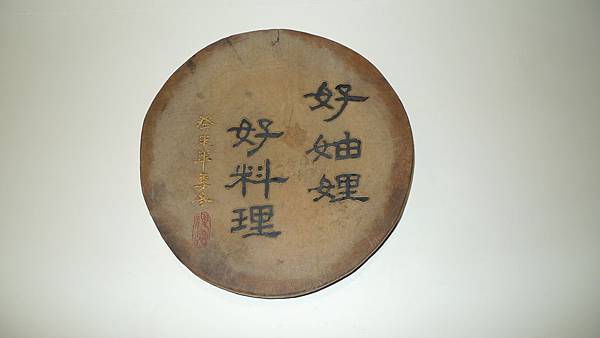 好妯娌
好料理